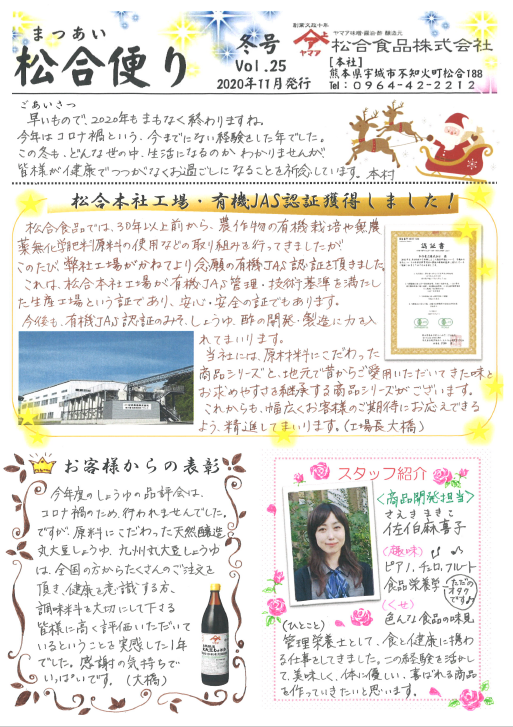 まつあい
松合便り
冬号
Vol.25
2020年11月発行
創業文政十年
ヤマア
ヤマア味噌・醤油 酢 醸造元
松合食品株式会社
[本社]
熊本県宇城市不知火町松合188
Tel：0964-42-2212
ごあいさつ
早いもので、2020年もまもなく終わりますね。
今年はコロナ禍という、今までにない経験をした年でした。
この冬も、どんな世の中、生活になるのかわかりませんが、
皆様が健康でつつがなくお過ごしになることを祈念しています。本村
松合本社工場・有機JAS認証獲得しました！
松合食品では、30年以上前から、農作物の有機栽培や無農
薬無化学肥料原料の使用などの取り組みを行ってきましたが
このたび、弊社工場がかねてより念願の有機JAS認証を頂きました。
これは、松合本社工場が有機JAS管理・技術基準を満たし
た生産工場という証であり、安心・安全の証でもあります。
今後も、有機JAS認証のみそ、しょうゆ、酢の開発・製造に力を入
れてまいります。
当社には、原材料にこだわった
商品シリーズと、地元で昔からご愛用いただいてきた味と
お求めやすさを継承する商品シリーズがございます。
これからも、幅広くお客様のご期待にお応えできる
よう、精進してまいります。(工場長大橋)
認証書
お客様からの表彰
今年度のしょうゆの品評会は、
コロナ禍のため、行われませんでした。
ですが、原料にこだわった天然醸造
丸大豆しょうゆ、九州丸大豆しょうゆ
は、全国の方からたくさんのご注文を
頂き、健康を意識する方、
調味料を大切にして下さる
皆様に高く評価いただいて
いるということを実感した1年
でした。感謝の気持ちで
いっぱいです。(大橋)
スタッフ紹介
<商品開発担当>
さえき まきこ
佐伯麻喜子
(趣味)
ピアノ、チェロ、フルート
食品栄養学
ただの
オタク
です♪
(くせ)
色んな食品の味見
(ひとこと)
管理栄養士として、食と健康に携わ
る仕事をしてきました。この経験を活かし
て、美味しく、体に優しい、喜ばれる商品
を作っていきたいと思います。